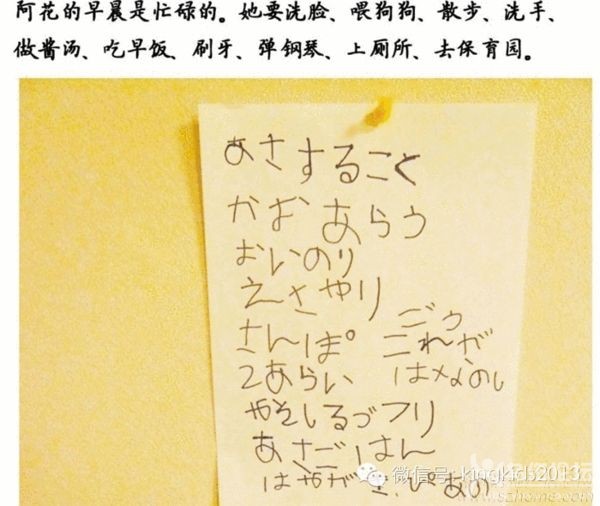 阿花的早晨是忙碌的。她要洗脸、喂狗狗、散步、洗手、
做酱汤、吃早饭、刷牙、弹钢琴、上厕所、去保育园。
あさすること
かおあらう
おいのり
えさやり
さんぽ
てあらい
ごう
これが
はなの
みそしるづくり
あさごはん
はみがき.ぴあの
微信号: kingkids2013